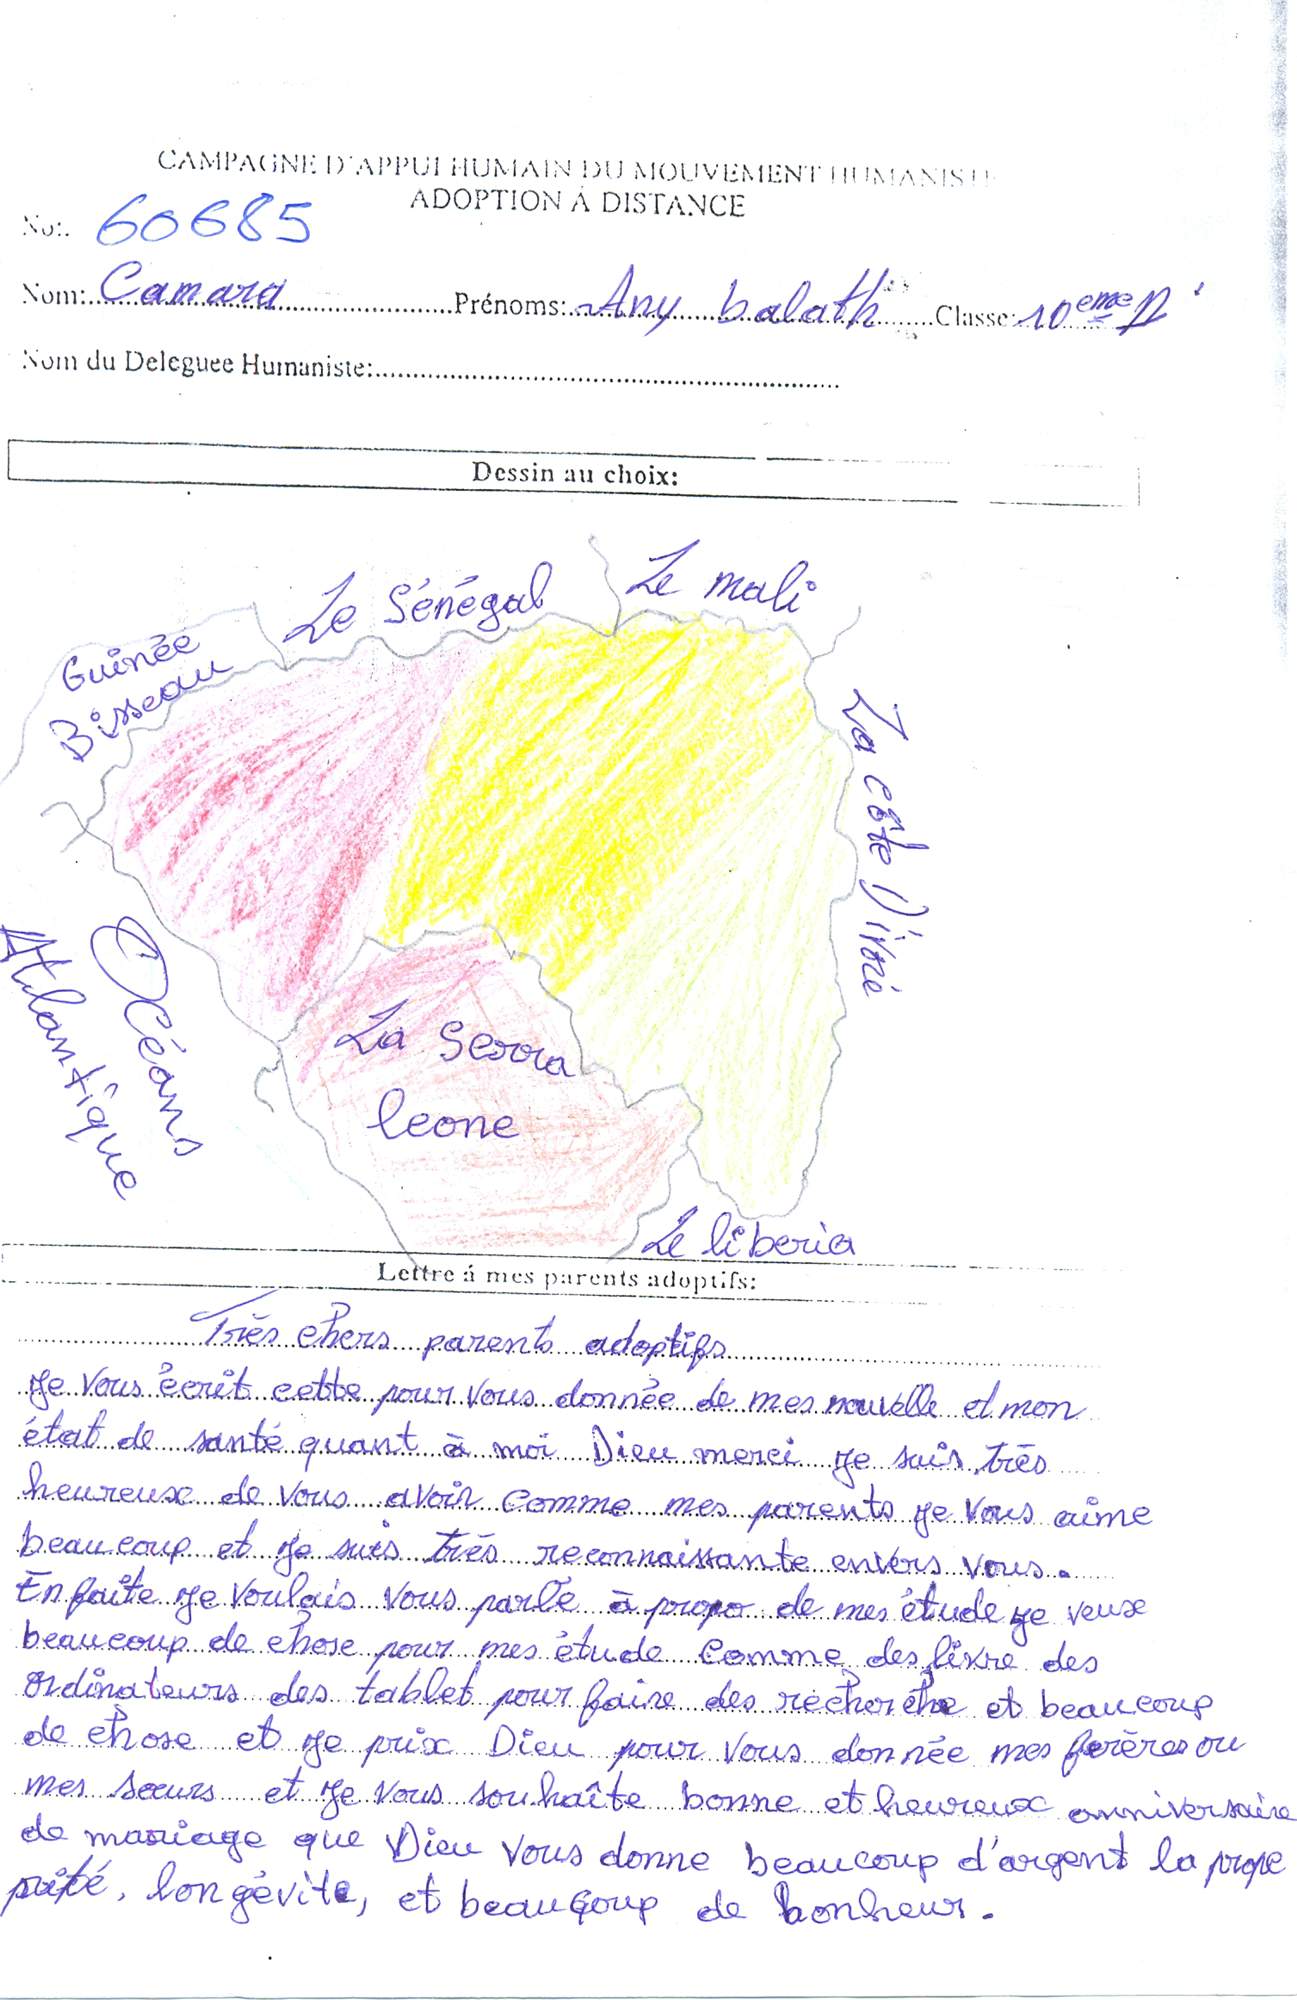 CAMPAGNE D'APPUI HUMAIN DU MOUVEMENT HUMANISTE
ADOPTION Á DISTANCE
No:. 60685
Nom: Camara Prénoms: Any balath Classe: 10eme D
Nom du Deleguee Humaniste:
Dessin au choix:
Le Sénégal
Le mali
Guinée
Bisseau
La côte D'ivoi
Océans
Atlantique
La Serra
leone
Le liberia
Lettre á mes parents adoptifs:
Très chers parents adoptifs
Je vous écrit cette pour vous donnée de mes nouvelle et mon
état de santé quant à moi Dieu merci je suis très
heureuse de vous avoir comme mes parents je vous aime
beaucoup et je suis très reconnaissante envers vous.
En faite je voulais vous parlé à propo de mes étude je veux
beaucoup de chose pour mes étude comme des livre des
ordinateurs des tablet pour faire des recherche et beaucoup
de chose et je prix Dieu pour vous donnée mes frères ou
mes sœurs et je vous souhaîte bonne et heureux anniversaire
de mariage que Dieu vous donne beaucoup d'argent la prope
rité, longévite, et beaucoup de bonheur.